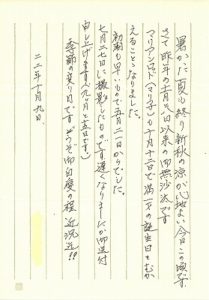 暑かった夏も終り新秋の涼が心地よい今日この頃です
さて昨年の十月　日以来の御無沙汰です
マリアンヌ（マリ子）も十月十二日で満一才の誕生日をむか
えることになりました。
初　も早いもので五月二一日からでした。
七月二七日に撮影したものです遅くなりましたが御送付
申し上げます（九ヶ月と五日です）
季節の変り目ですどうぞ御自愛の程　近況迄!!
二二年十月九日、